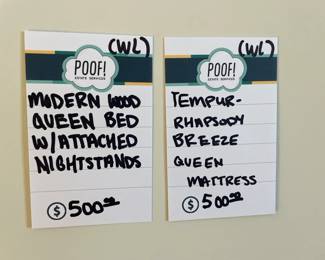 (WL)
POOF!
ESTATE SERVICES
MODERN WOOD
QUEEN BED
W/ATTACHED
NIGHTSTANDS
$ 500.00
(WL)
POOF!
ESTATE SERVICES
TEMPUR-
RHAPSODY
BREEZE
QUEEN
MATTRESS
$ 500.00